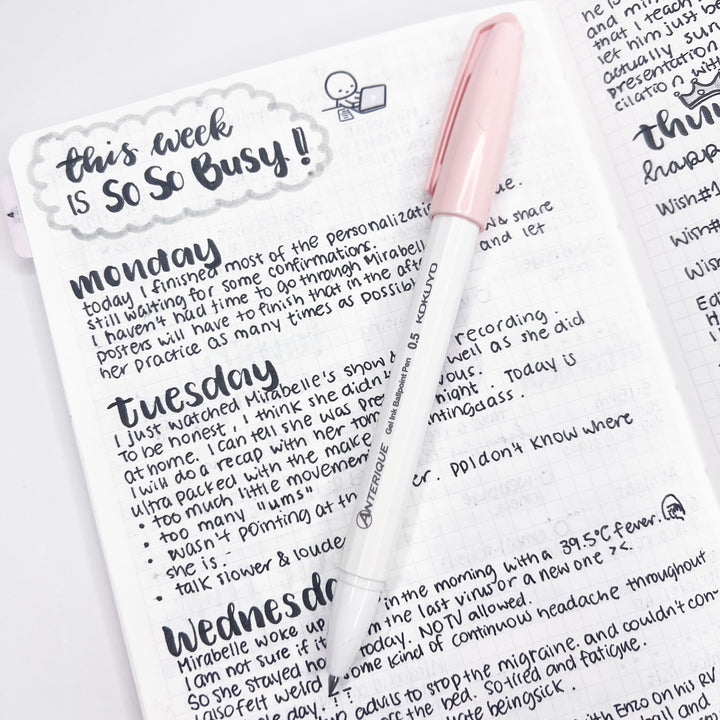 this week
IS SO SO Busy!
monday
today I finished most of the personalizati ue.
still waiting for some confirmations.
I haven't had time to go through Mirabell & share
posters will have to finish that in the afte and let
her practice as many times as possibl
Tuesday
I just watched Mirabelle's show & recording.
To be honest, I think she didn't well as she did
at home. I can tell she was pre vous.
I will do a recap with her tom night. Today is
ultra packed with the make intingclass.
• too much little movemen
• too many "ums"
• wasn't pointing at th er. ppl don't know where
she is.-
• talk slower & loude
Wednesda
Mirabelle woke up in the morning with a 39.5°C fever.
I am not sure if it m the last virus or a new one ><.
So she stayed ho today. NO TV allowed.
I also felt weird some kind of continuow headache throughout
le day. advils to stop the migraine. and couldn't con-
ss the bed. So tired and fatigue.
ate being sick.
with Enzo on his RV
ll and
ANTERIQUE Gel Ink Ballpoint Pen 0.5 KOKUYO
he is
and mi
that I teach
let him just be
actually sun
presentation
cilation with
thu
happ
Wish #1
Wish #
Wish
Ed
H
I